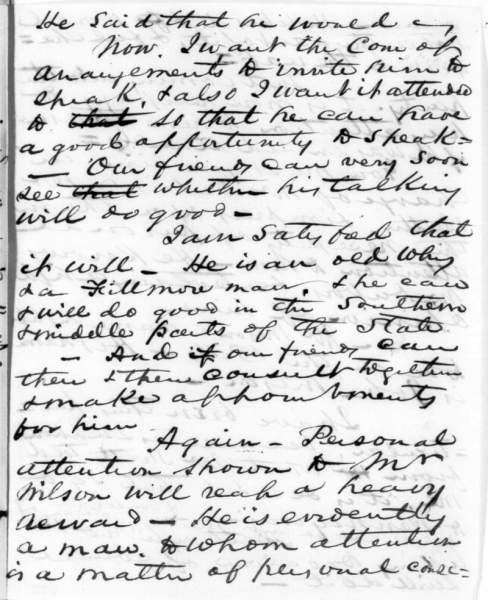 He said that he would
Now. I want the Com of
arrangements to invite him to
speak, & also I want it attended
to that so that he can have
a good opportunity to speak -
- Our friends can very soon
see that whether his talking
will do good -
I am satisfied that
it will - He is an old Whig
& a Fillmore man, & he can
& will do good in the Southern
& middle parts of the State
- And if our friends can
then & there consult together
& make appointments
for him
Again - Personal
attention shown to Mr
Wilson will reap a heavy
reward - He is evidently
a man, to whom attention
is a matter of personal conse-